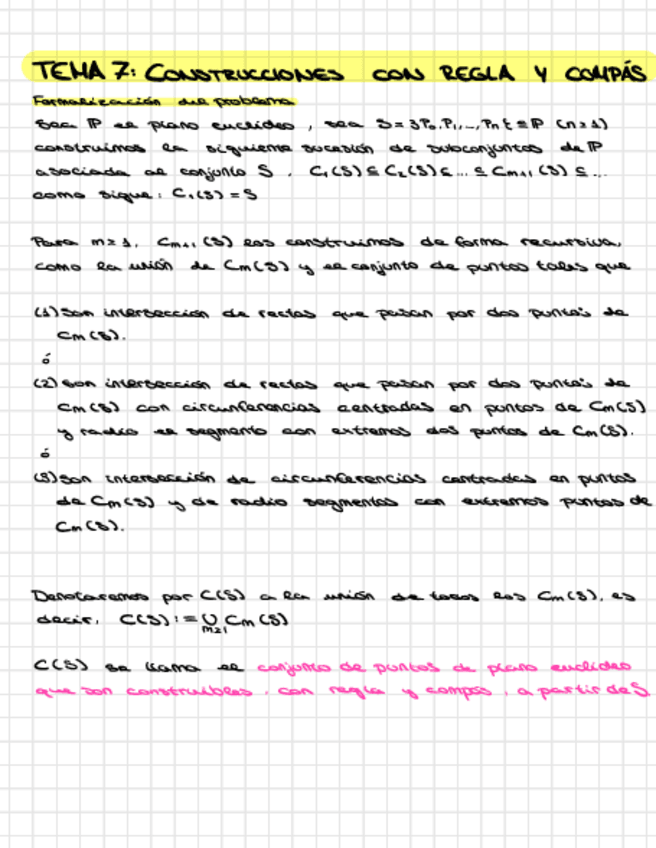 TEMA 7: CONSTRUCCIONES CON REGLA Y COMPÁS
Formalización del problema
Sea ℙ el plano euclideo, sea S = {P₀, P₁, ..., Pₙ} ⊆ ℙ (n ≥ 1)
construimos la siguiente sucesión de subconjuntos de ℙ
asociada al conjunto S. C₁(S) ⊆ C₂(S) ⊆ ... ⊆ Cₘ₊₁(S) ⊆ ...
como sigue: C₁(S) = S
Para m ≥ 1, Cₘ₊₁(S) los construimos de forma recursiva,
como la unión de Cₘ(S) y el conjunto de puntos tales que
(1) son intersección de rectas que pasan por dos puntos de
Cₘ(S).
ó
(2) son intersección de rectas que pasan por dos puntos de
Cₘ(S) con circunferencias centradas en puntos de Cₘ(S)
y radio el segmento con extremos dos puntos de Cₘ(S).
ó
(3) son intersección de circunferencias centradas en puntos
de Cₘ(S) y de radio segmentos con extremos puntos de
Cₘ(S).
Denotaremos por C(S) a la unión de todos los Cₘ(S), es
decir, C(S) := ∪ Cₘ(S)
m≥1
C(S) se llama el conjunto de puntos de plano euclideo
que son construibles, con regla y compás, a partir de S